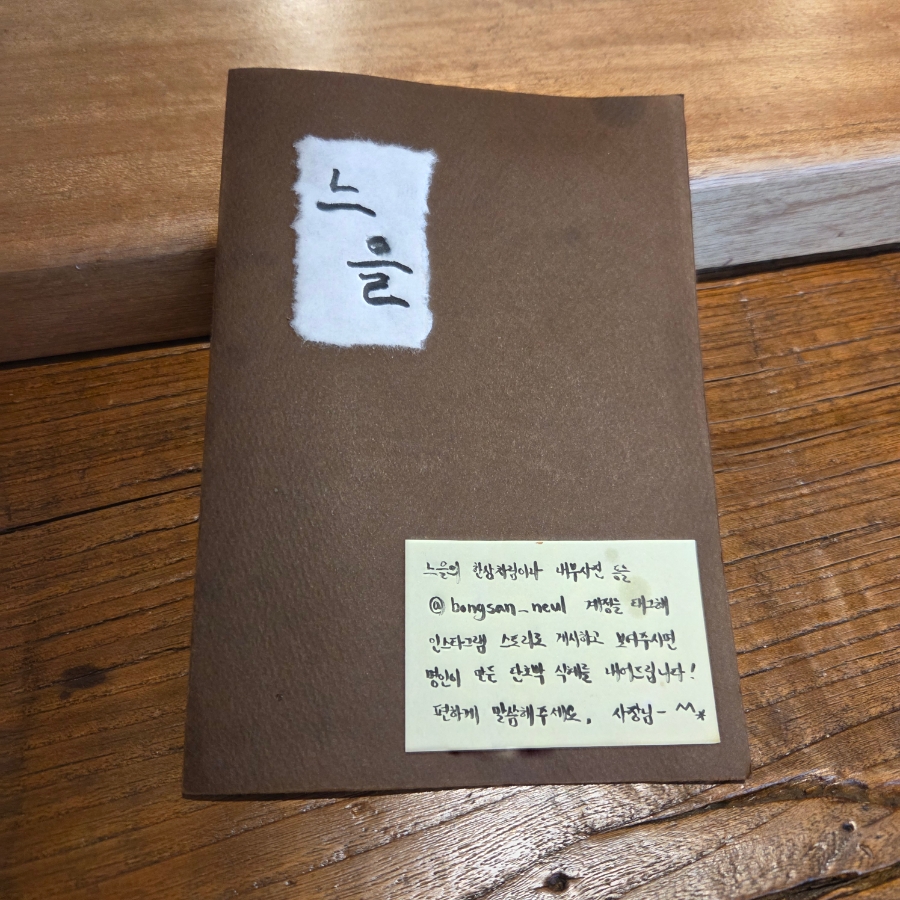 느
을
느을의 한상차림이나 내부사진 등을
@bongsan_neul 계정을 태그해
인스타그램 스토리로 게시하고 보여주시면
명인이 만든 단호박 식혜를 내어드립니다!
편하게 말씀해주세요, 사장님- ^^*